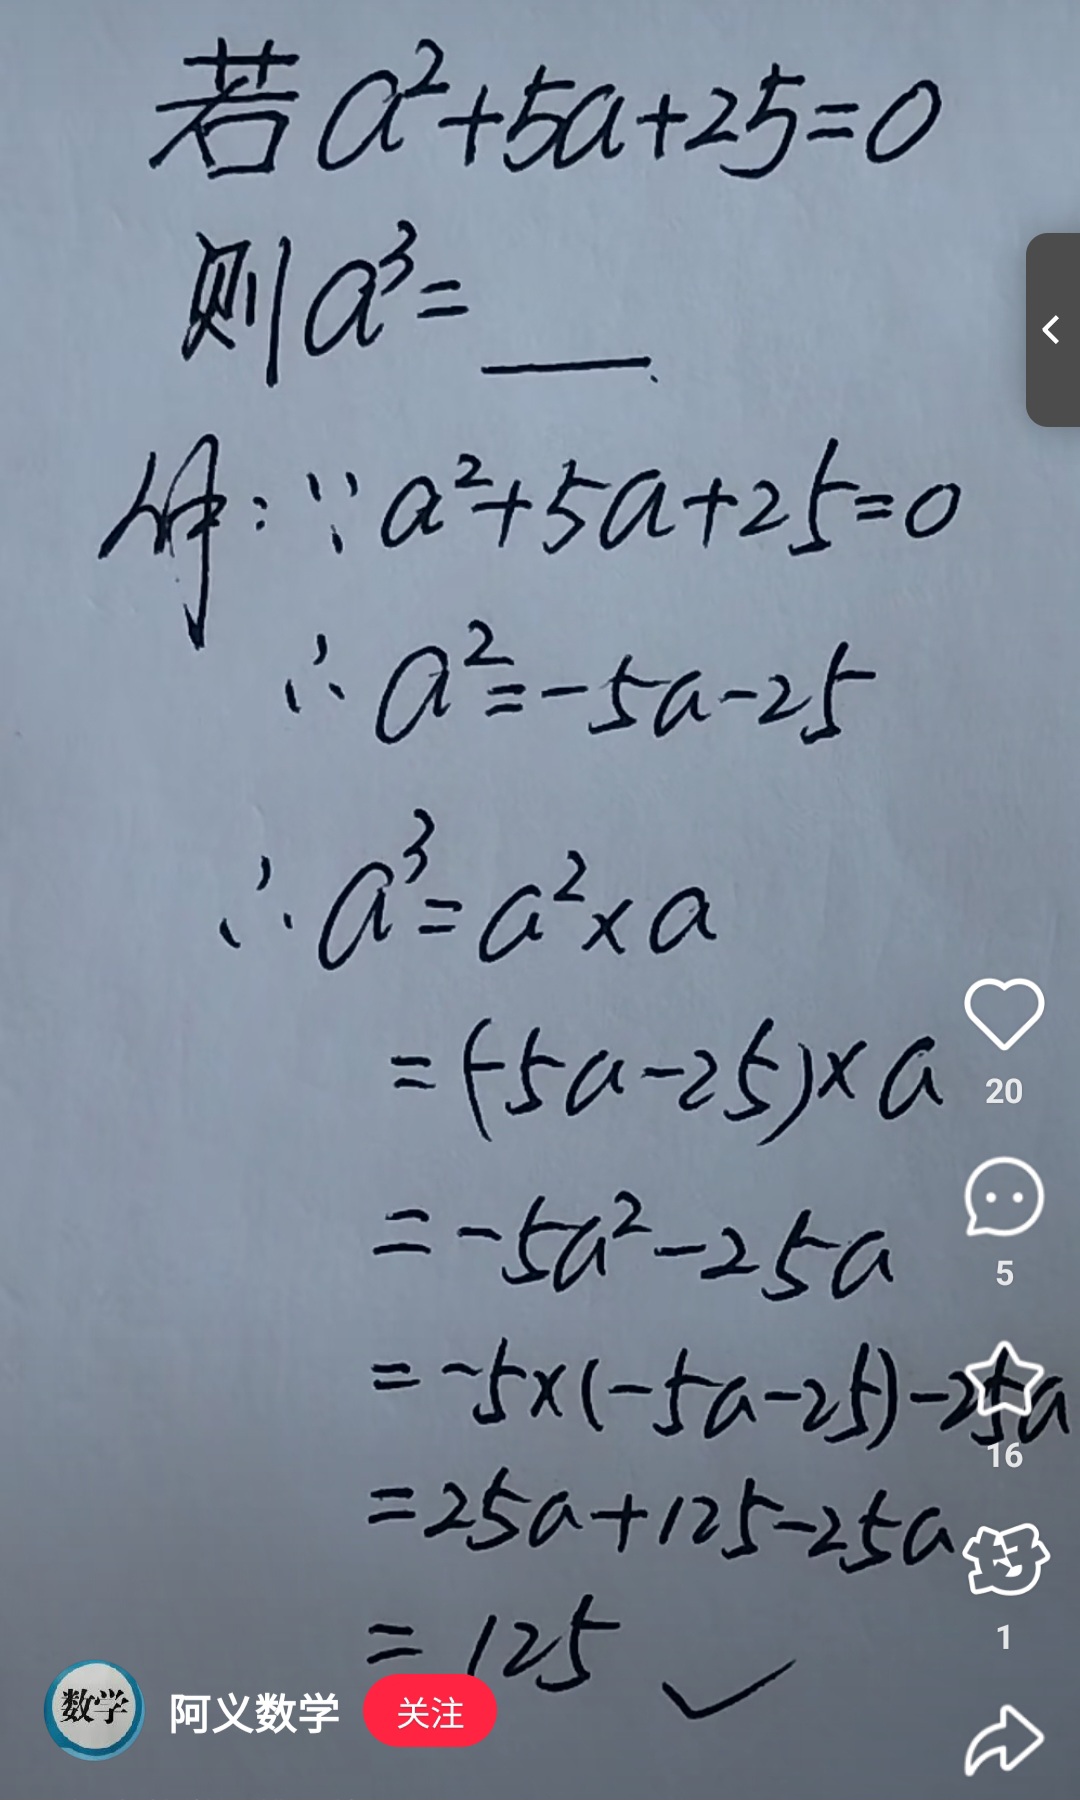 若a²+5a+25=0
则a³=____.
解:∵a²+5a+25=0
∴a²=-5a-25
∴a³=a²×a
=(-5a-25)×a
=-5a²-25a
=-5×(-5a-25)-25a
=25a+125-25a
=125 ✓
20
5
16
1
数学 阿义数学 关注